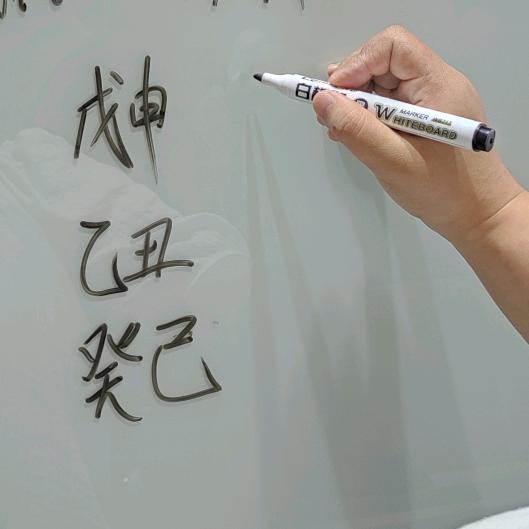 戊申
乙丑
癸己
WHITEBOARD
MARKER